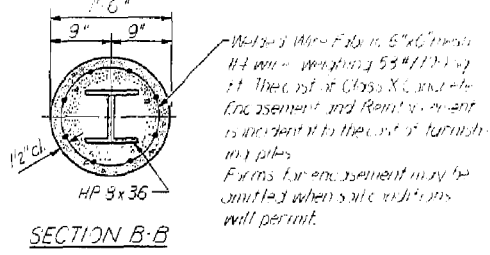 1'-6"
9" 9"
Welded Wire Fabric 6"x6" mesh
#4 wire weighing 58#/100 sq
ft. The cost of Class X Concrete
Encasement and Reinforcement
is incident to the cost of furnish-
ing piles
Forms for encasement may be
omitted when soil conditions
will permit.
1½" cl.
HP 8x36
SECTION B-B